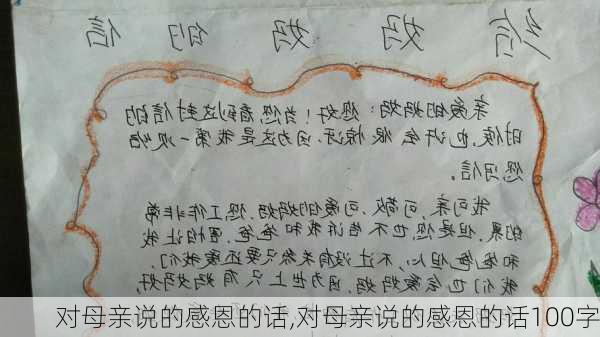 给妈妈的信
亲爱的妈妈：您好！当您看到这封信的
时候，也许会很惊讶，因为这是我第一次给
您写信。
我可亲，可敬，可爱的妈妈，您工作非常
的累，但是您也不告诉我和爸爸，害怕让我
和爸爸担心，不过没有关系只要您还爱我们，
我们也会爱妈妈，因为世上只有妈妈好，
对母亲说的感恩的话,对母亲说的感恩的话100字